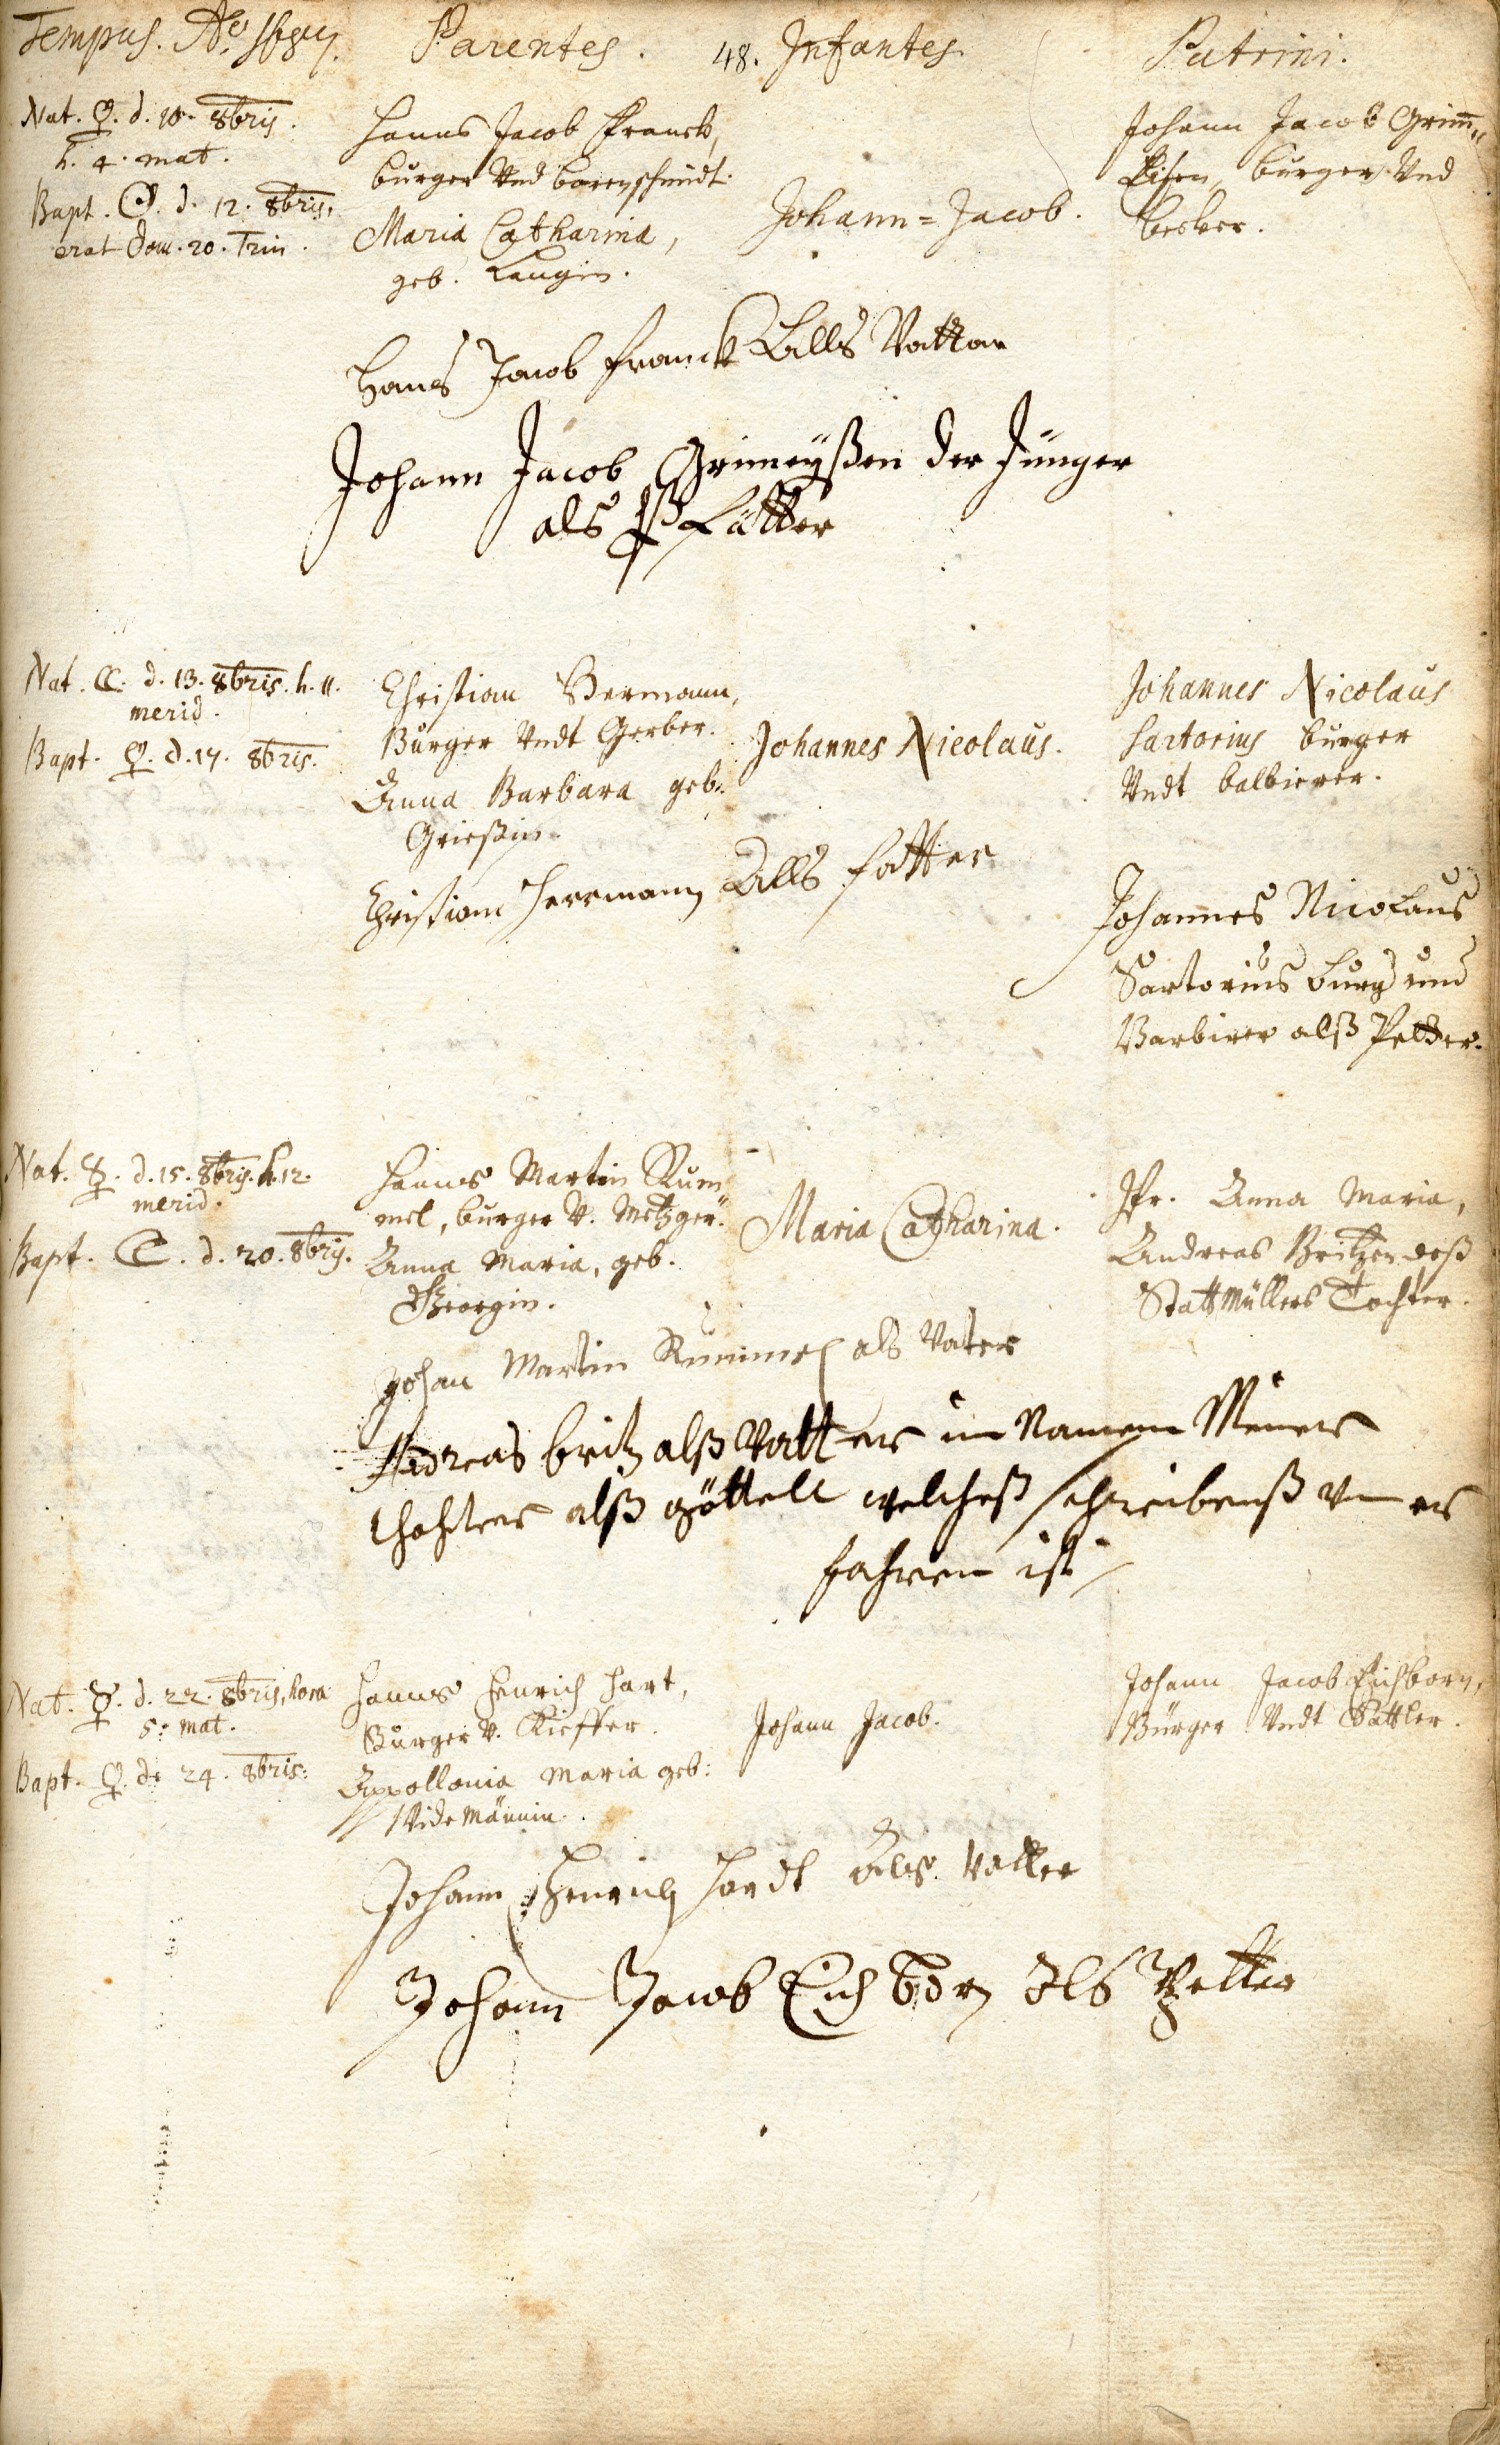 Tempus. Aō. 1687. Parentes. 48. Infantes. Patrini.
Nat. ♀. d. 10. 8bris.
h. 4. mat.
Bapt. ☉. d. 12. 8bris,
erat Dom. 20. Trin.
Hanns Jacob Franck,
burger Und
Maria Catharina,
geb. Langin.
Johann = Jacob.
Johann Jacob Grim̄„
Eisen, burger Und
becker.
Hans Jacob Franck Alls Vatter
Johann Jacob Grimeyßen der Jünger
als Pfätter
Nat. ☾. d. 13. 8bris. h. 11.
merid.
Bapt. ♀. d. 17. 8bris.
Christian Hermann,
Burger Undt Gerber.
Anna Barbara geb:
Grießin.
Johannes Nicolaus.
Johannes Nicolaus
Sartorius burger
Undt balbierer.
Christian Herrmann Alls fatter
Johannes Nicolaus
Sartorius burg und
Barbirer alß Petter.
Nat. ☿. d. 15. 8bris. h. 12.
merid.
Bapt. ☾. d. 20. 8bris.
Hanns Martin Rum„
mel, burger V. Metzger.
Anna Maria, geb.
Georgin.
Maria Catharina.
Jfr. Anna Maria,
Andreas Britzen deß
Stattmüllers Tochter.
Johan Martin Rummel als Vater
Andreas britz alß Vatter im Namen Meiner
thochter alß göttell welcheß schreibenß un er
fahren ist
Nat. ☿. d. 22. 8bris, hora
5. mat.
Bapt. ♀. d. 24. 8bris.
Hanns Henrich Hart,
Burger V. Kieffer.
Appollonia Maria geb:
Widemännin.
Johann Jacob.
Johann Jacob Eichborn,
Bürger Undt Sattler.
Johann Henrich Hardt Als Vatter
Johann Jacob Eichborn Als Petter